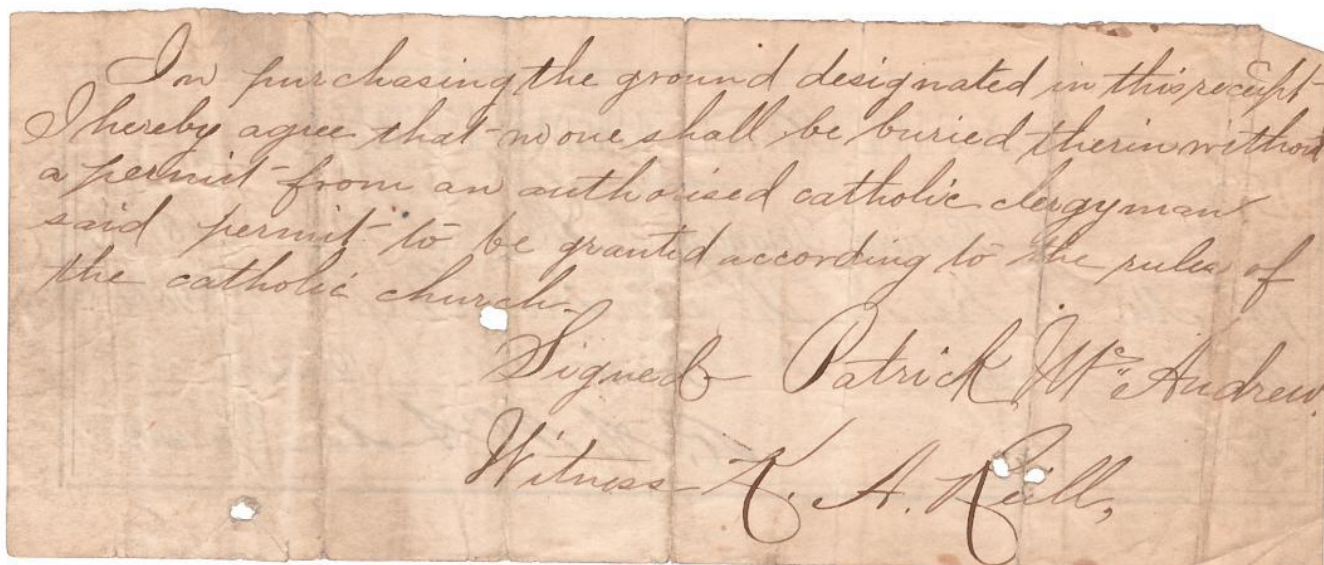 In purchasing the ground designated in this reciept
I hereby agree that no one shall be buried therin without
a permit from an authorised catholic clergyman
said permit to be granted according to the rules of
the catholic church.
Signed Patrick Mc Andrew.
Witness K. A.